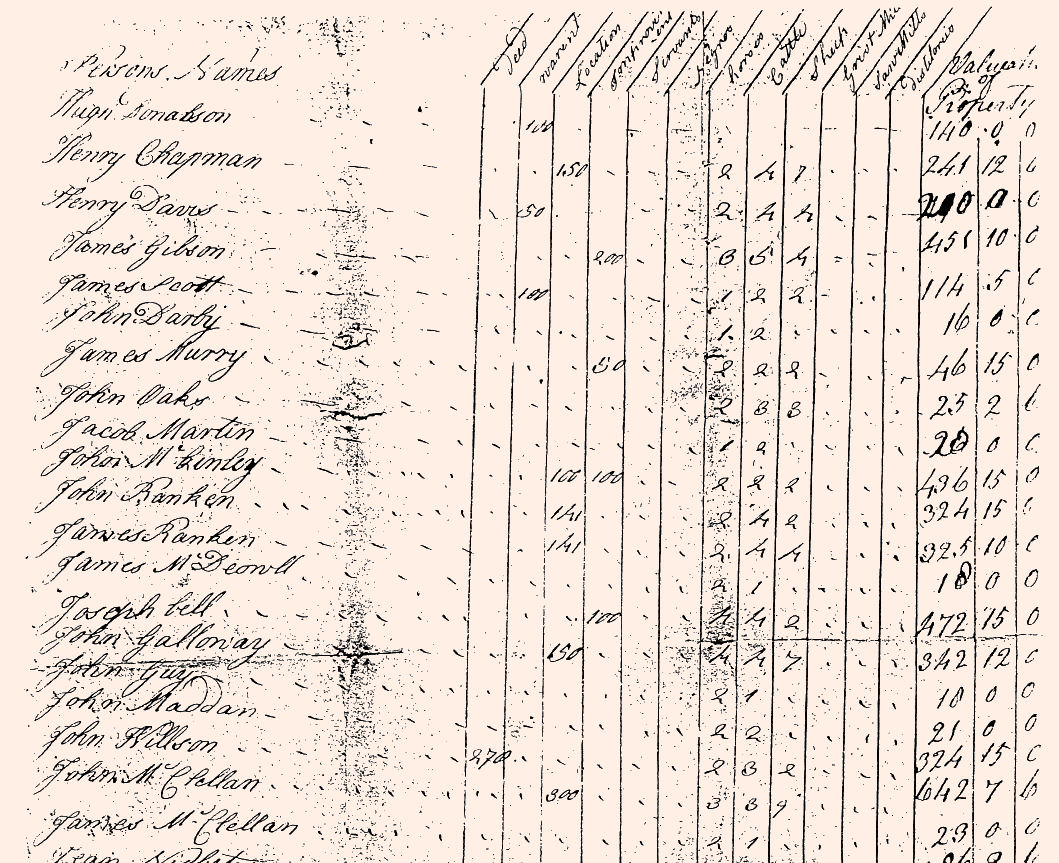 Persons Names Deed warent Location Improvement Servants Negros horses Cattle Sheep Grist Mills Saw Mills Distileries Valuation of Property
Hugh Donalson 100 140 0 0
Henry Chapman 150 2 4 7 241 12 6
Henry Davis 50 2 4 4 0 0
James Gibson 200 3 5 4 451 10 0
James Scott 100 1 2 2 114 5 0
John Darby 1 2 16 0 0
James Murry 50 2 2 2 46 15 0
John Oaks 2 3 3 25 2 6
Jacob Martin 1 2 20 0 0
John McKinley 100 100 2 2 2 436 15 0
John Ranken 141 2 4 2 324 15 0
James Ranken 141 2 4 4 325 10 0
James McDeowll 2 1 18 0 0
Joseph bell 100 4 4 2 472 15 0
John Galloway 150 4 4 7 342 12 6
John Guy 2 1 10 0 0
John Maddan 2 2 21 0 0
John Willson 270 2 3 2 324 15 0
John McClellan 300 3 3 9 642 7 6
James McClellan 2 1 23 0 0